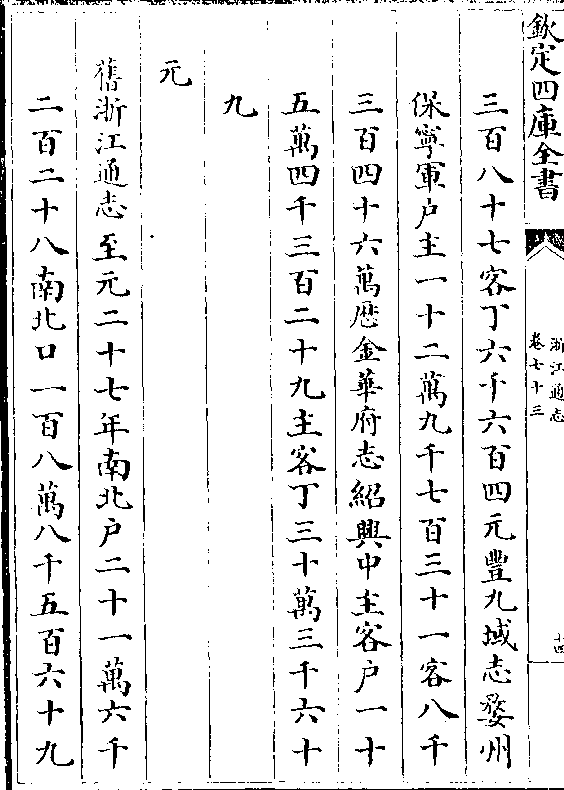 欽定四庫全書
浙江通志
卷七十三
十四
三百八十七客丁六千六百四元豐九域志婺州
保寧軍户主一十二萬九千七百三十一客八千
三百四十六萬厯金華府志紹興中主客户一十
五萬四千三百二十九主客丁三十萬三千六十
九
元
舊浙江通志至元二十七年南北户二十一萬六千
二百二十八南北口一百八萬八千五百六十九